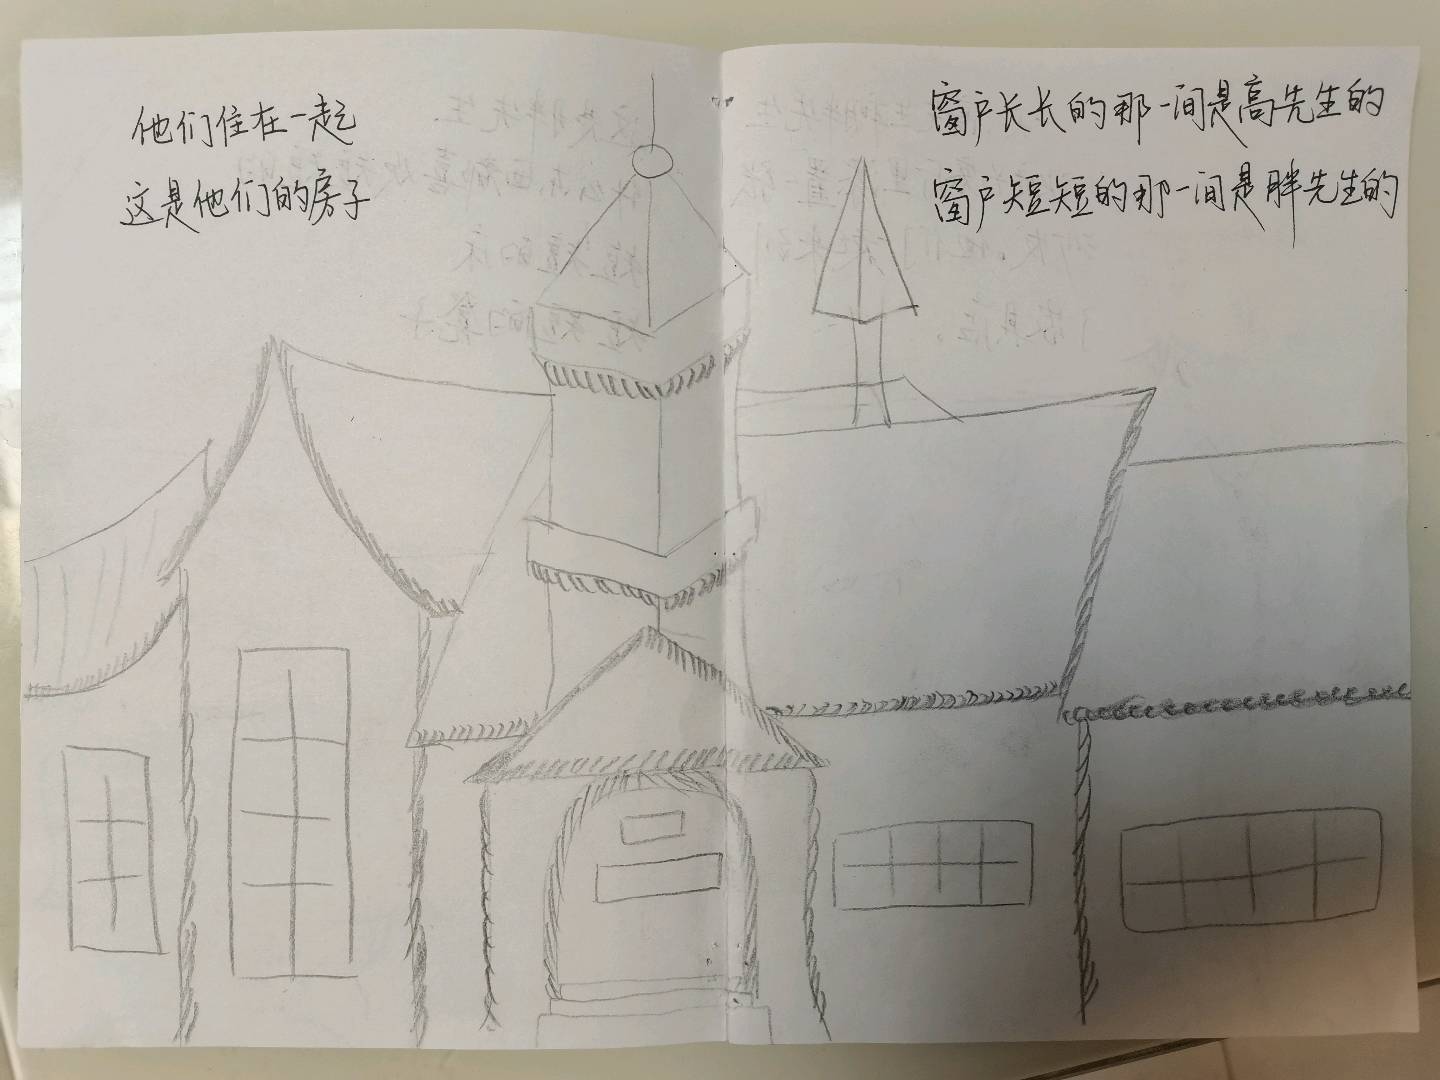 他们住在一起
这是他们的房子
窗户长长的那一间是高先生的
窗户短短的那一间是胖先生的